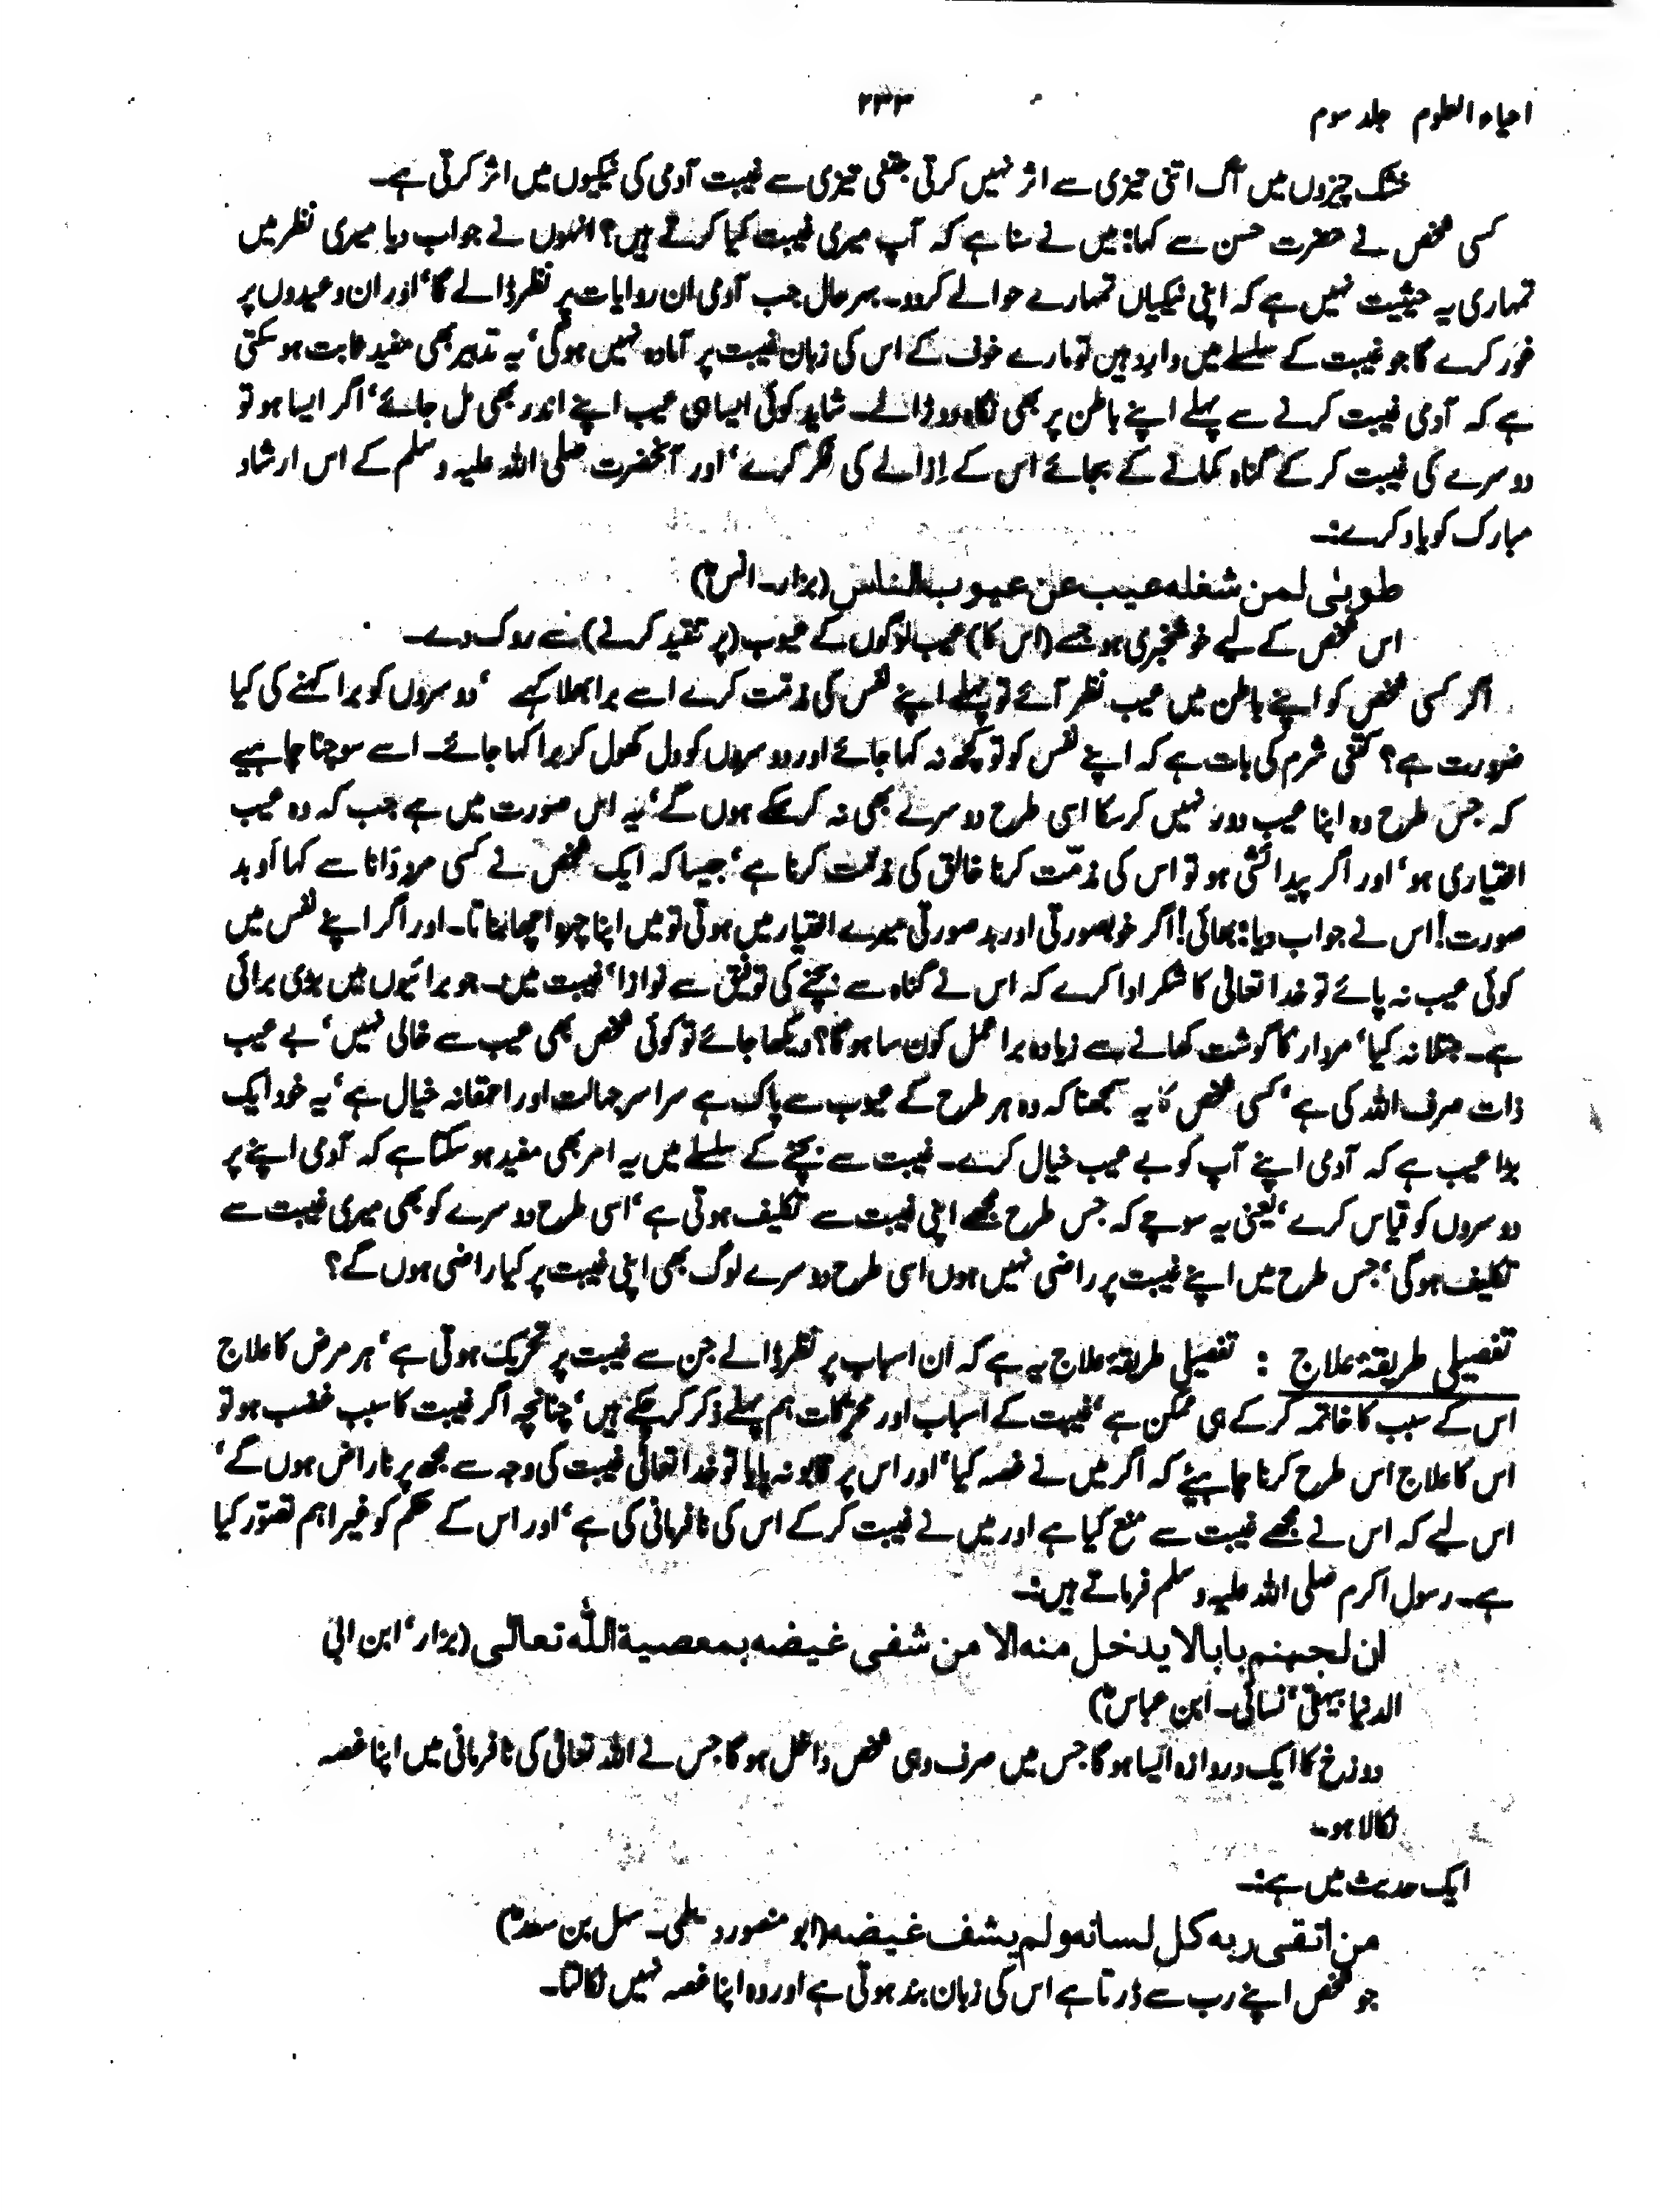 احیاء العلوم جلد سوم
۲۳۳
خشک چیزوں میں آگ اتنی تیزی سے اثر نہیں کرتی جتنی تیزی سے غیبت آدمی کی نیکیوں میں اثر کرتی ہے۔
کسی شخص نے حضرت حسن سے کہا: میں نے سنا ہے کہ آپ میری غیبت کیا کرتے ہیں؟ انہوں نے جواب دیا میری نظر میں
تمہاری یہ حیثیت نہیں ہے کہ اپنی نیکیاں تمہارے حوالے کردوں۔ بہرحال جب آدمی ان روایات پر نظر ڈالے گا‘ اور ان وعیدوں پر
غور کرے گا جو غیبت کے سلسلے میں وارد ہیں تو مارے خوف کے اس کی زبان غیبت پر آمادہ نہیں ہوگی‘ یہ تدبیر بھی مفید ثابت ہو سکتی
ہے کہ آدمی غیبت کرنے سے پہلے اپنے باطن پر بھی نگاہ دوڑالے۔ شاید کوئی ایسا ہی عیب اپنے اندر بھی مل جائے‘ اگر ایسا ہو تو
دوسرے کی غیبت کر کے گناہ کمانے کے بجائے اس کے ازالے کی فکر کرے‘ اور آنحضرت صلی اللہ علیہ وسلم کے اس ارشاد
مبارک کو یاد کرے:۔
طوبٰی لمن شغله عیب عن عیوب الناس (بزار۔ انسؓ)
اس شخص کے لیے خوشخبری ہو جسے (اس کا) عیب لوگوں کے عیوب (پر تنقید کرنے) سے روک دے۔
اگر کسی شخص کو اپنے باطن میں عیب نظر آئے تو پہلے اپنے نفس کی مذمّت کرے اسے برا بھلا کہے ‘ دوسروں کو برا کہنے کی کیا
ضرورت ہے؟ کتنی شرم کی بات ہے کہ اپنے نفس کو تو کچھ نہ کہا جائے اور دوسروں کو دل کھول کر برا کہا جائے۔ اسے سوچنا چاہیے
کہ جس طرح وہ اپنا عیب دور نہیں کرسکا اسی طرح دوسرے بھی نہ کرسکے ہوں گے‘ یہ اس صورت میں ہے جب کہ وہ عیب
اختیاری ہو‘ اور اگر پیدائشی ہو تو اس کی مذمّت کرنا خالق کی مذمّت کرنا ہے‘ جیسا کہ ایک شخص نے کسی مرد دانا سے کہا اَو بد
صورت! اس نے جواب دیا: بھائی! اگر خوبصورتی اور بدصورتی میرے اختیار میں ہوتی تو میں اپنا چہرہ اچھا بناتا۔ اور اگر اپنے نفس میں
کوئی عیب نہ پائے تو خدا تعالیٰ کا شکر ادا کرے کہ اس نے گناہ سے بچنے کی توفیق سے نوازا‘ غیبت میں۔ جو برائیوں میں بڑی برائی
ہے۔ جتلا نہ کیا‘ مردار کا گوشت کھانے سے زیادہ برا عمل کون سا ہوگا؟ دیکھا جائے تو کوئی شخص بھی عیب سے خالی نہیں‘ بے عیب
ذات صرف اللہ کی ہے‘ کسی شخص کا یہ سمجھنا کہ وہ ہر طرح کے عیوب سے پاک ہے سراسر جہالت اور احمقانہ خیال ہے‘ یہ خود ایک
بڑا عیب ہے کہ آدمی اپنے آپ کو بے عیب خیال کرے۔ غیبت سے بچنے کے سلسلے میں یہ امر بھی مفید ہو سکتا ہے کہ آدمی اپنے پر
دوسروں کو قیاس کرے‘ یعنی یہ سوچے کہ جس طرح مجھے اپنی غیبت سے تکلیف ہوتی ہے‘ اسی طرح دوسرے کو بھی میری غیبت سے
تکلیف ہوگی‘ جس طرح میں اپنے غیبت پر راضی نہیں ہوں اسی طرح دوسرے لوگ بھی اپنی غیبت پر کیا راضی ہوں گے؟
تفصیلی طریقۂ علاج : تفصیلی طریقۂ علاج یہ ہے کہ ان اسباب پر نظر ڈالے جن سے غیبت پر تحریک ہوتی ہے‘ ہر مرض کا علاج
اس کے سبب کا خاتمہ کر کے ہی ممکن ہے‘ غیبت کے اسباب اور محرکات ہم پہلے ذکر کر چکے ہیں‘ چنانچہ اگر غیبت کا سبب غضب ہو تو
اس کا علاج اس طرح کرنا چاہئیے کہ اگر میں نے غصہ کیا‘ اور اس پر قابو نہ پایا تو خدا تعالیٰ غیبت کی وجہ سے مجھ پر ناراض ہوں گے‘
اس لیے کہ اس نے مجھے غیبت سے منع کیا ہے اور میں نے غیبت کرکے اس کی نافرمانی کی ہے‘ اور اس کے حکم کو غیر اہم تصوّر کیا
ہے۔ رسول اکرم صلی اللہ علیہ وسلم فرماتے ہیں:۔
ان لجہنم بابا لا یدخل منه الا من شفی غیضه بمعصیة اللّٰه تعالٰی (بزار‘ ابن ابی
الدنیا بیہقی‘ نسائی۔ ابن عباسؓ)
دوزخ کا ایک دروازہ ایسا ہوگا جس میں صرف وہی شخص داخل ہوگا جس نے اللہ تعالیٰ کی نافرمانی میں اپنا غصہ
نکالا ہو۔
ایک حدیث میں ہے:۔
من اتقی ربه کل لسانه ولم یشف غیضه (ابو منصور دیلمی۔ سہل بن سعدؓ)
جو شخص اپنے رب سے ڈرتا ہے اس کی زبان بند ہوتی ہے اور وہ اپنا غصہ نہیں نکالتا۔